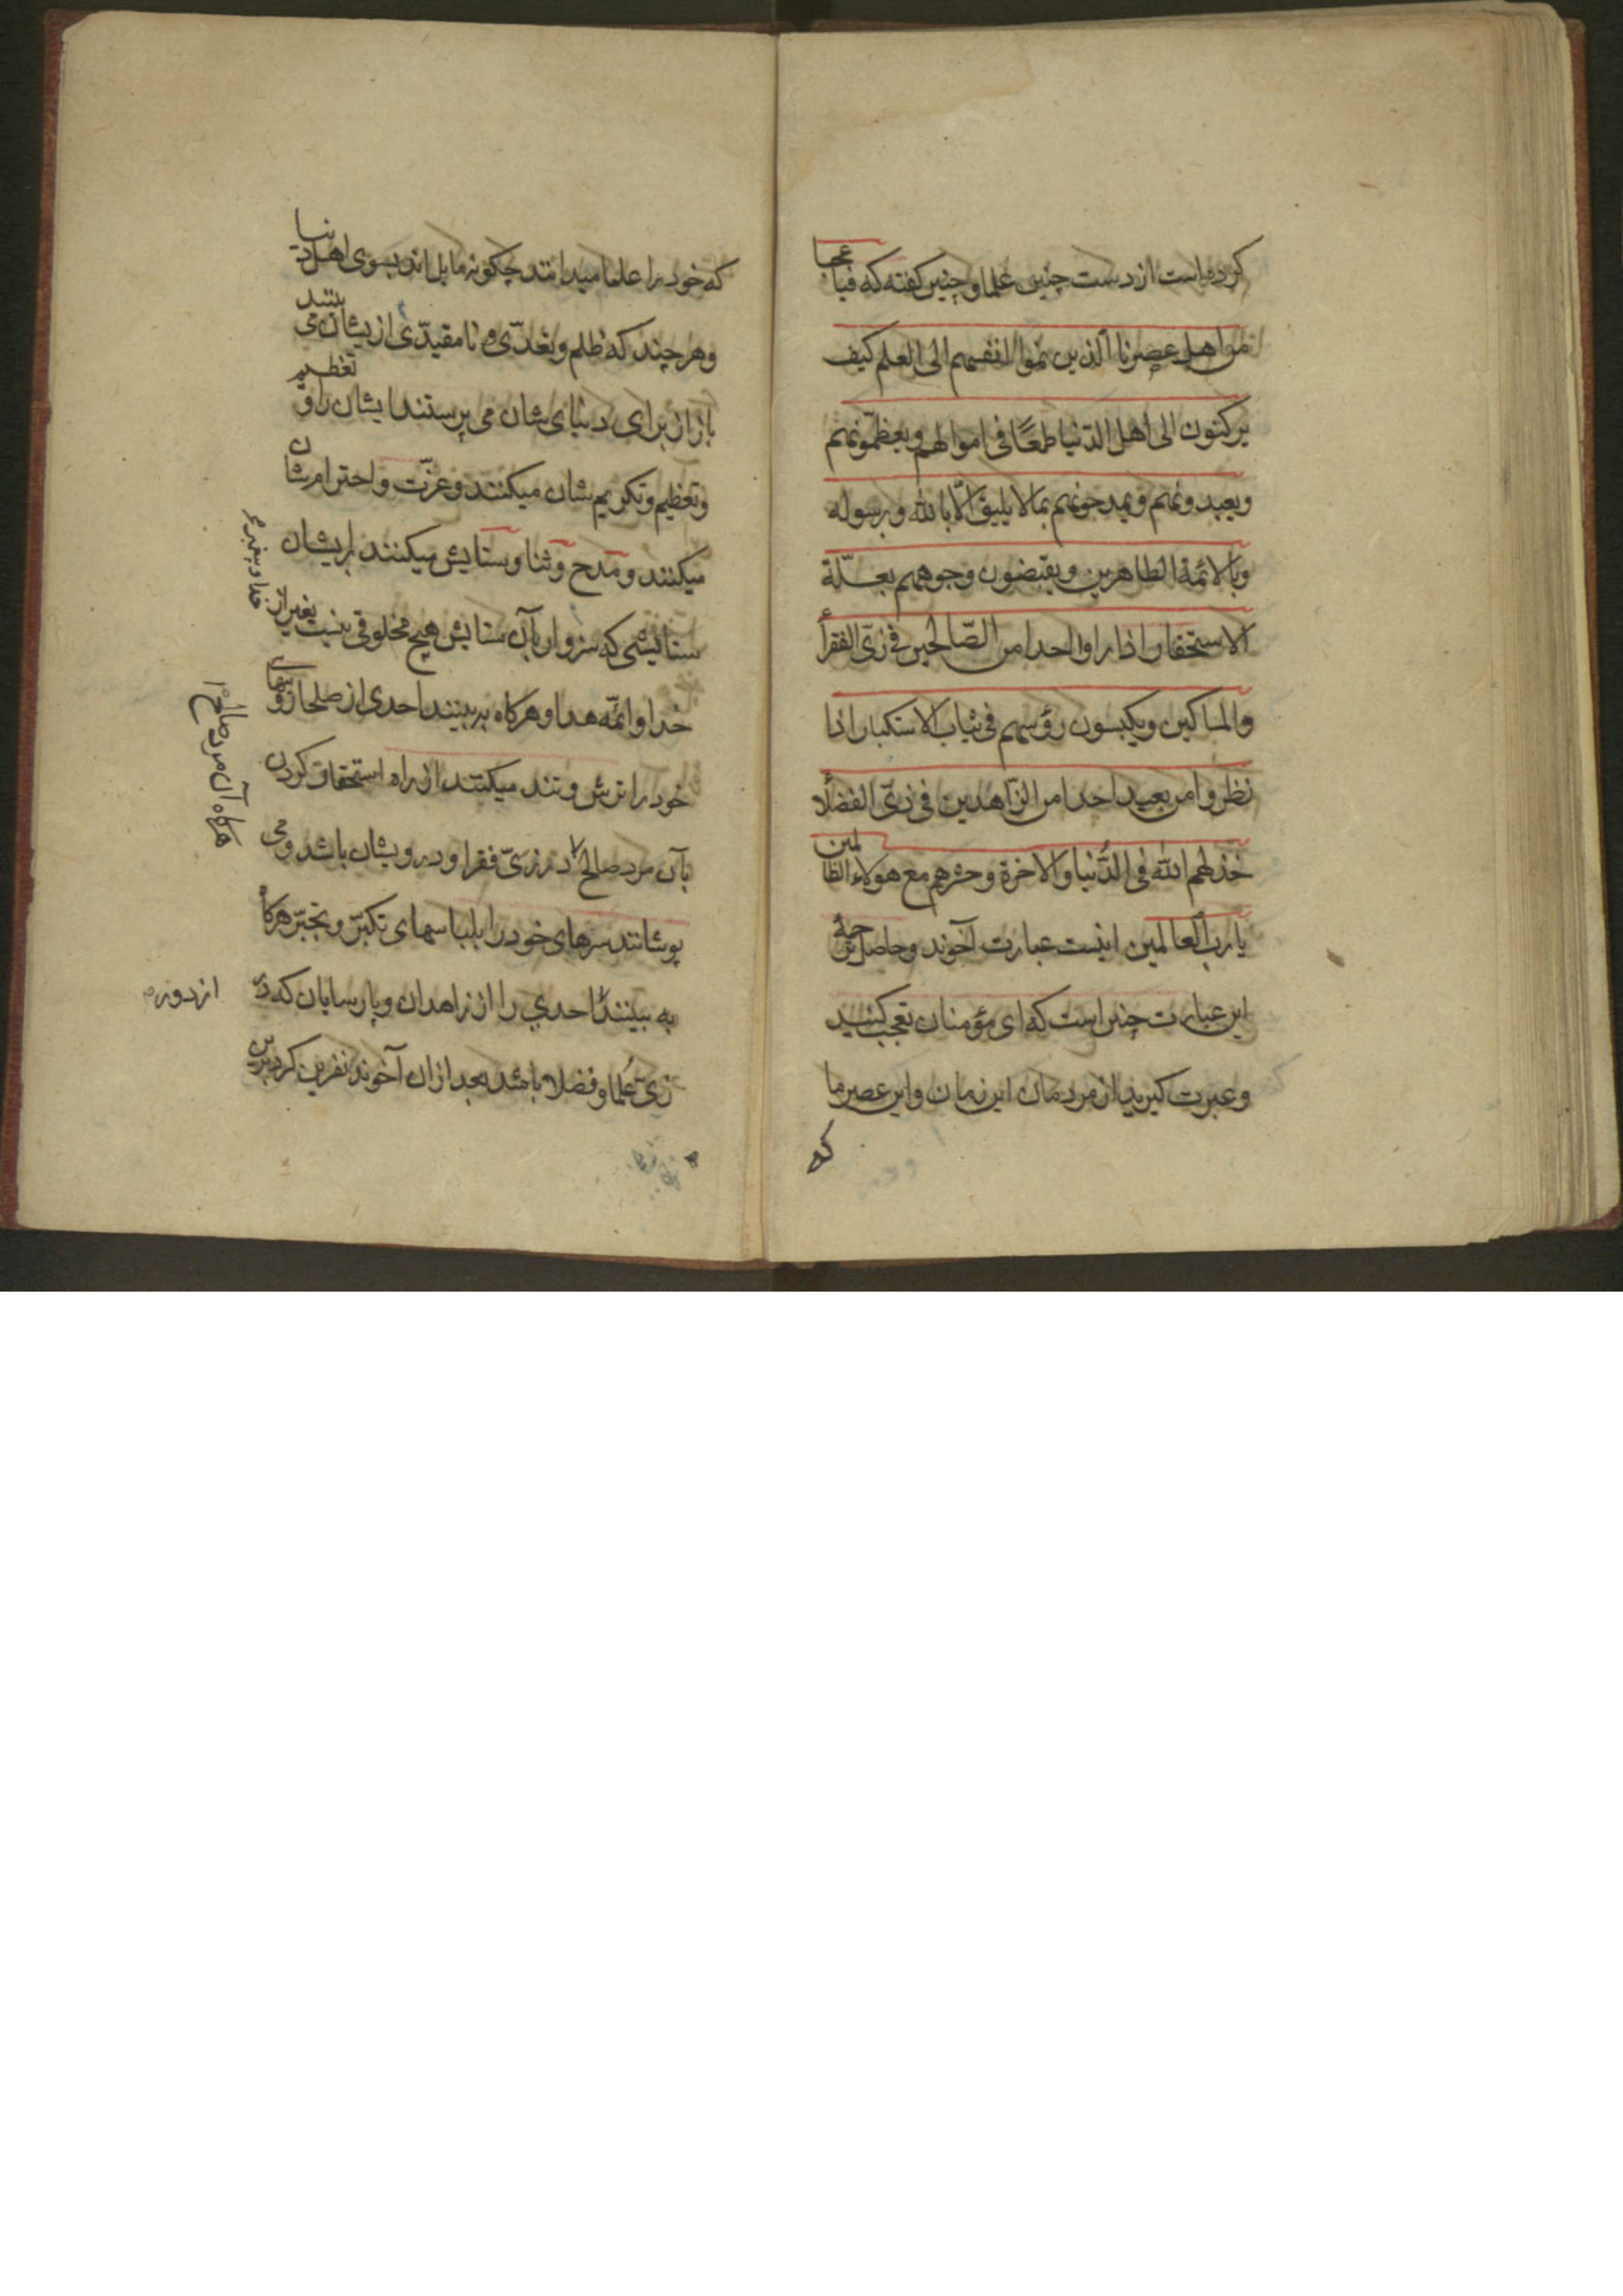 کرده است از دست چنین علما و چنین گفته که فیا عجبا
من اهل عصرنا الذین نموا انفسهم الی العلم کیف
یرکنون الی اهل الدّنیا طمعًا فی اموالهم و یعظّمونهم
و یعبدونهم و یمدحونهم بما لا یلیق الّا بالله و برسوله
و بالائمة الطاهرین و یقبضون وجوههم بعلّة
الاستحقار اذا راوا احدا من الصّالحین فی زیّ الفقرأ
والمساکین و یکبسون رؤسهم فی ثیاب الاستکبار اذا
نظروا من بعید احدا من الزّاهدین فی زیّ الفضلأ
خذلهم الله فی الدُّنیا والاخرة و حشرهم مع هولاء الظالمین
یا رب العالمین اینست عبارت آخوند و حاصل ترجمهٔ
این عبارت چنین است که ای مؤمنان تعجب کنید
و عبرت کیرید از مردمان این زمان و این عصر ما
که
که خود را علما میدانند چکونه مایل اند بسوی اهل دنیا
و هر چند که ظلم و تعدّی و نا مقیدّی از یشان می بینند
باز از برای دنیای شان می پرستند ایشان را و تعظیم
و تعظیم و تکریم شان میکنند و عزّت و احترام شان
میکنند و مدح و ثنا و ستایش میکنند بر ایشان
ستایشی که سزوار بآن ستایش هیچ مخلوقی نیست بغیر از
خدا و پیغمبر
خدا و ائمّه هدا و هرکاه به بینند احدی از صلحا روهای
خود را ترش و تند میکنند از راه استحقار کردن
بآن مرد صالح در زیّ فقرا و درویشان باشد و می
هرکاه آن مرد صالح
پوشانند سرهای خود را بلباسهای تکبّر و تجبّر هرکاه
به بینند احدي را از زاهدان و پارسایان که در
از دور
زیّ عُلما و فضلا باشد بعد ازان آخوند نفرین کرد برین